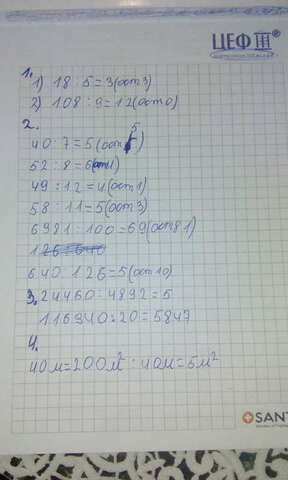 ЦЕФ
1.
1) 18 : 5 = 3 (ост 3)
2) 108 : 9 = 12 (ост 0)
2.
40 : 7 = 5 (ост 5)
52 : 8 = 6 (ост 4)
49 : 12 = 4 (ост 1)
58 : 11 = 5 (ост 3)
6981 : 100 = 69 (ост 81)
126 : 640
640 : 126 = 5 (ост 10)
3. 24460 : 4892 = 5
116940 : 20 = 5847
4.
40м = 200м² : 40м = 5м²
SANT